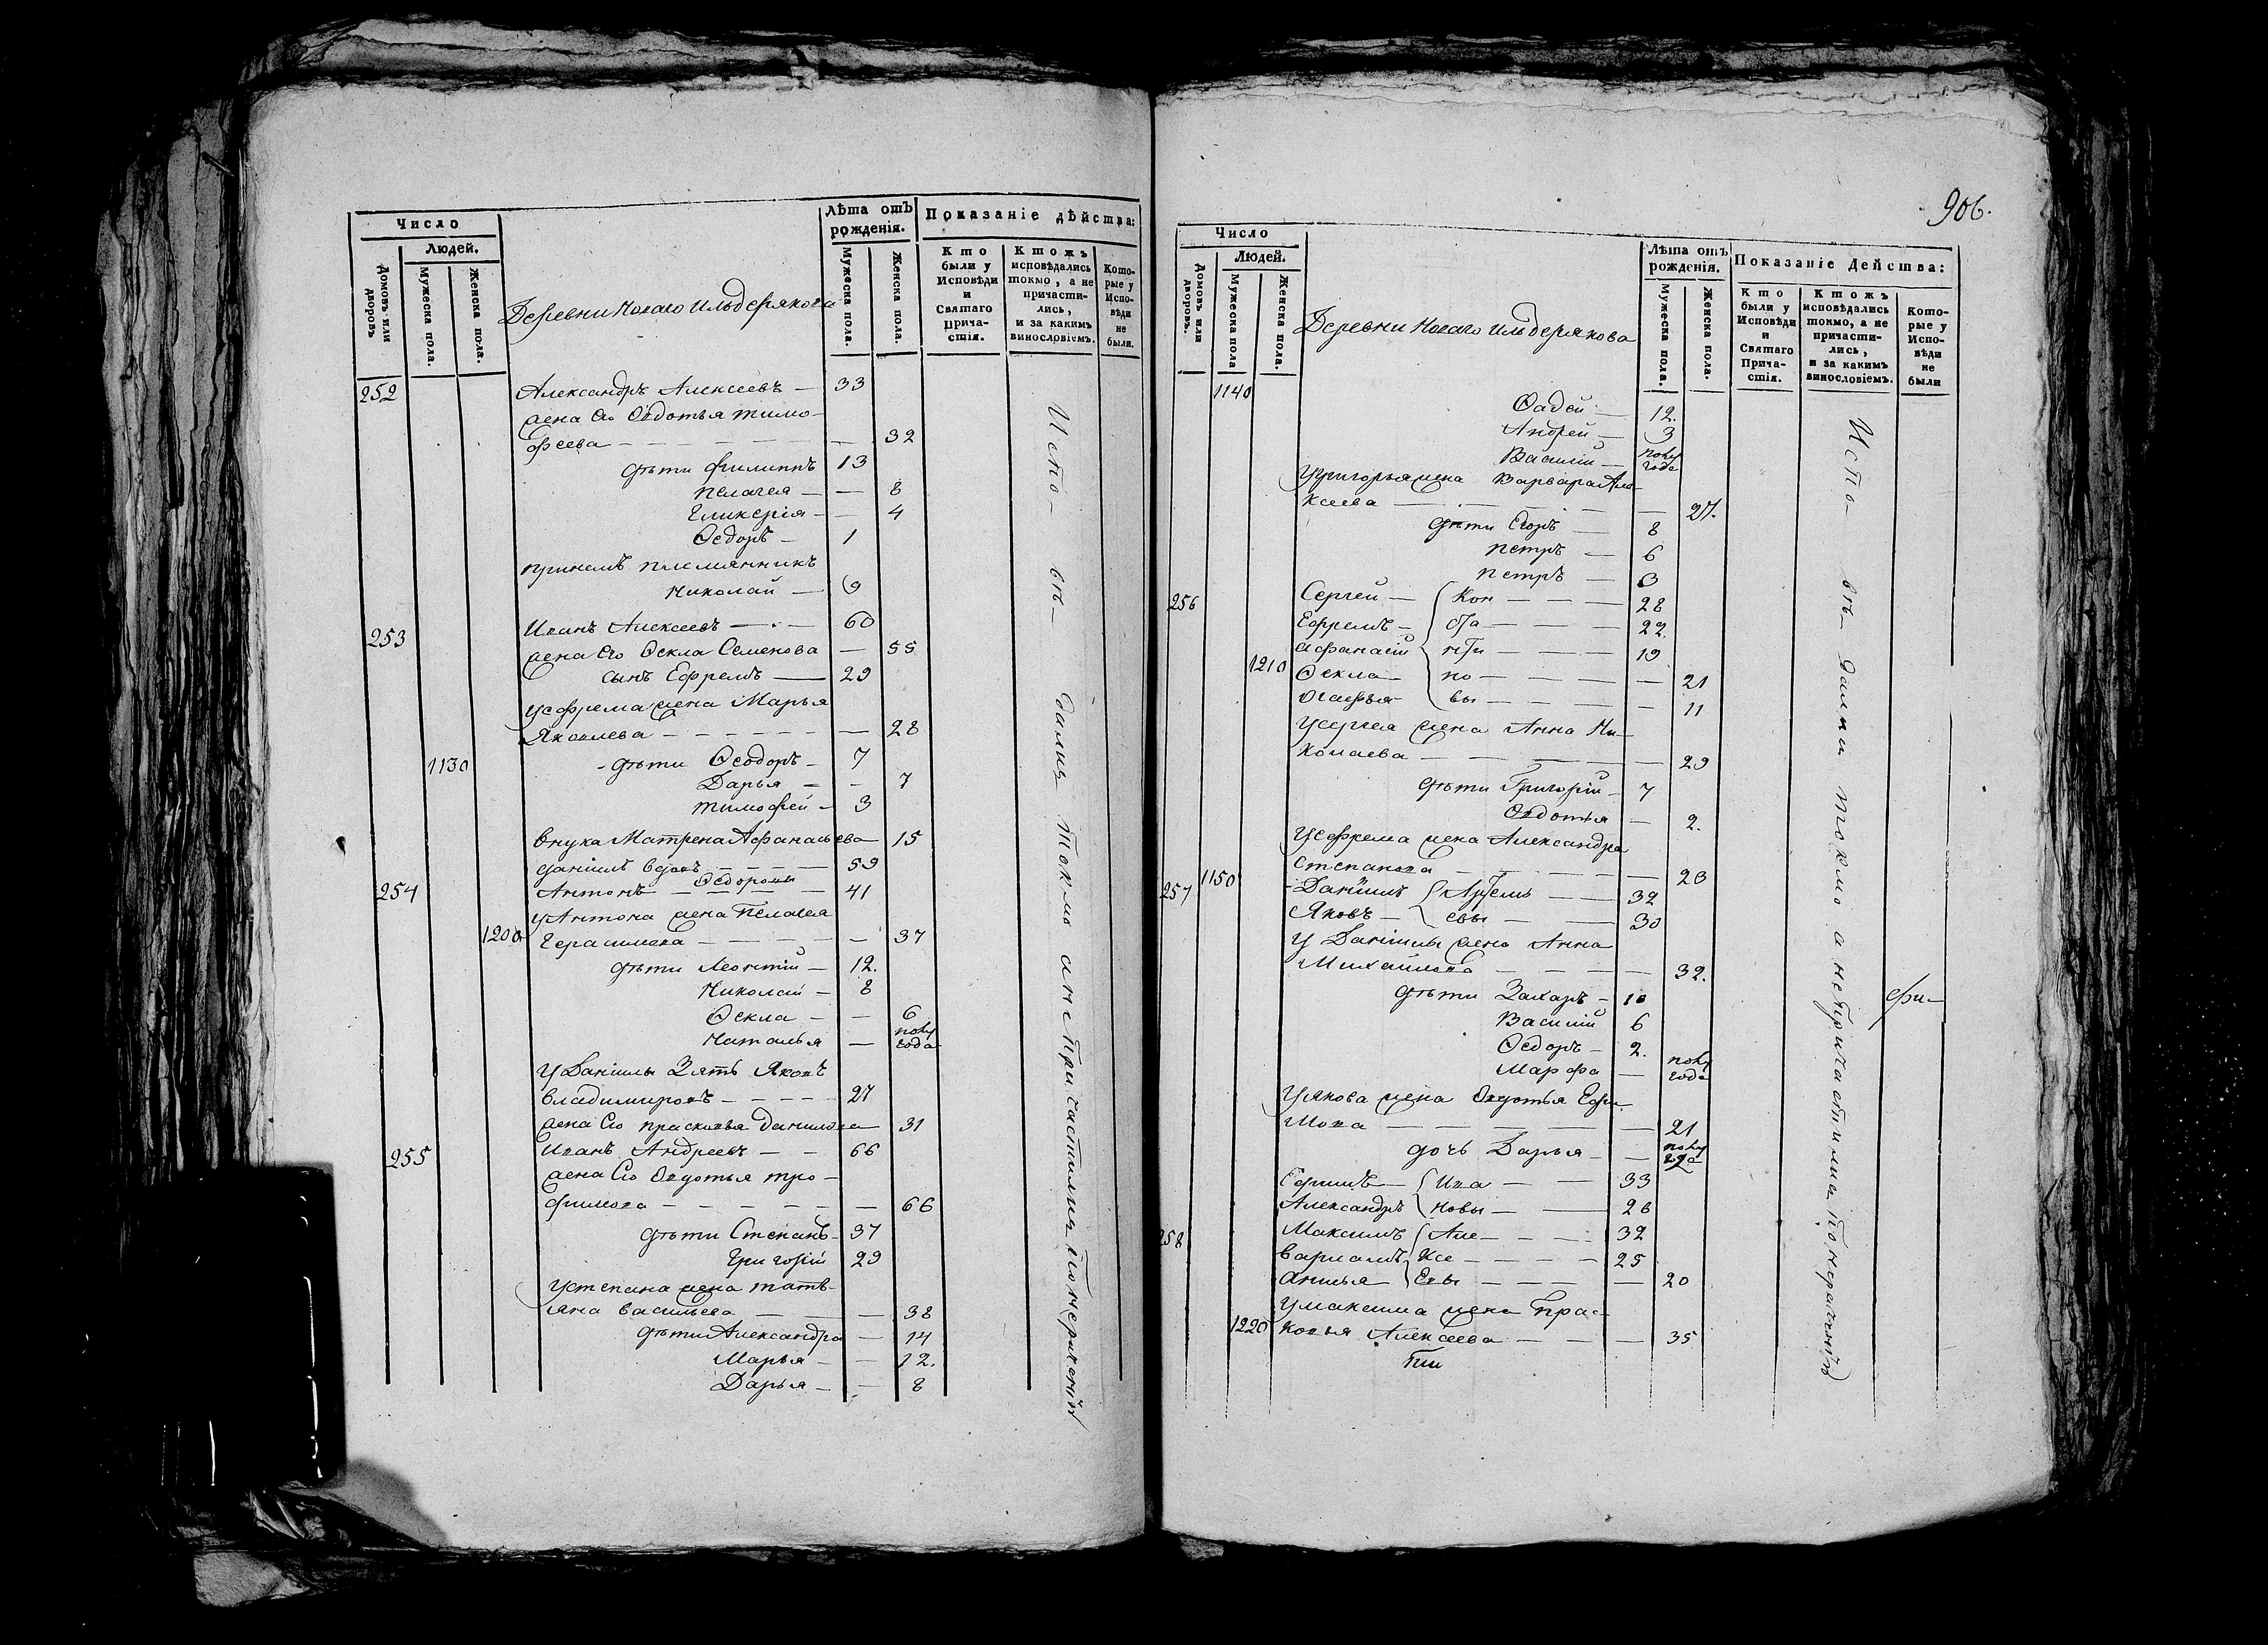 Число
Людей.
Домовъ или дворовъ
Мужеска пола.
Женска пола.
Деревни Новаго Ильдерякова
Лѣта отъ рожденія.
Мужеска пола.
Женска пола.
Показаніе дѣйства:
Кто были у Исповѣди и Святаго Причастія.
Ктожъ исповѣдались токмо, а не причастились, и за какимъ винословіемъ.
Которые у Исповѣди не были.
252 Александръ Алексеевъ — 33
жена его Овдотья Тимо-
феева — 32
дѣти Филиппъ 13
Пелагея — 8
Гликерія — 4
Ѳедоръ — 1
племянникъ
Николай — 9
253 Иванъ Алексеевъ — 60
жена его Ѳекла Семенова — 55
сынъ Ефремъ — 29
у Ефрема жена Марья
Яковлева — 28
1130 дѣти Ѳеодоръ — 7
Дарья — 7
Тимофей — 3
внука Матрена Афанасьева 15
Данiилъ вдовъ — 59
254 Антонъ — Ѳедоровы — 41
у Антона жена Пелагея
1200 Герасимова — 37
дѣти Леонтій — 12.
Николай — 8
Ѳекла — 6
Наталья — полугода
у Данiилы Зять Яковъ
Владимировъ — 27
жена Его Прасковья Данилова 31
255 Иванъ Андреевъ — 66
жена Его Овдотья Тро-
фимова — 66
дѣти Степанъ — 37
Григорій 29
у Степана жена Татъ-
яна Васильева — 38
дѣти Александра — 14
Марья — 12.
Дарья — 8
Испо-вѣ-дались токмо а не причастились по нерѣ
906.
Число
Людей.
Домовъ или дворовъ.
Мужеска пола
Женска пола.
Деревни Новаго Ильдерякова
Лѣта отъ рожденія.
Мужеска пола.
Женска пола.
Показаніе Дѣйства:
Кто были у Исповѣди и Святаго Причастія.
Ктожъ исповѣдались токмо, а не причастились, и за какимъ винословіемъ.
Которые у Исповѣди не были
1140 Фадей — 12.
Андрей — 3
Василій — полугода
у Григорья жена Варвара Але-
ксеева — 27.
дѣти Егоръ — 8
Петръ — 6
Петръ — 3
256 Сергей — Кон — 28
Ефремъ — ста — 22.
Афанасій нти — 19
1210 Ѳекла — но — 21
Огафья — вы — 11
у Сергея жена Анна Ни-
колаева — 29
дѣти Григорій — 7
Овдотья — 2.
у Ефрема жена Александра
1150 Степанова — 23
257 Данiилъ Артемь — 32
Яковъ — евы — 30
у Данiилы жена Анна
Михайлова — 32.
дѣти Захаръ — 10
Василій 6
Ѳедоръ — 2.
Марфа — полугода
у Якова жена Овдотья Ефи-
мова — 21
дочь Дарья — полугода
Ефимъ — Ива — 33
Александръ новы — 26
258 Максимъ Але — 32
Варламъ ксе — 25
Анисья — евы — 20
у Максима жена Прас-
1220 ковья Алексеева — 35
Испо-вѣ-дались токмо а не причастились по нерѣ